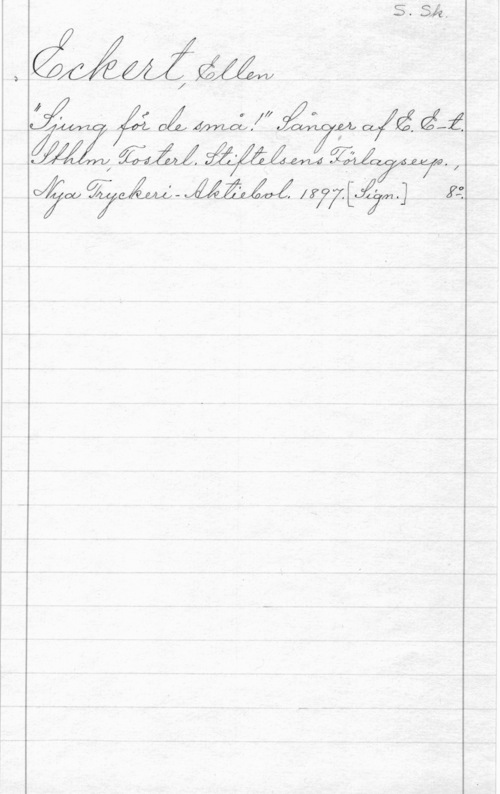 S. Sk.
Eckert, Ellen
"Sjung för de små!" Sånger af E. E-t.
Sthlm, Fosterl. Stiftelsens Förlagsexp.,
Nya Tryckeri-Aktiebol. 1897. [Sign.] 8:o